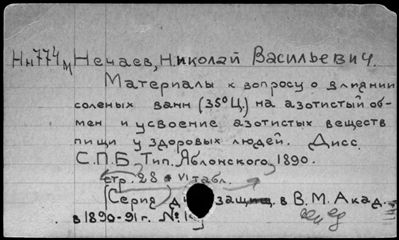 Нн774м Нечаев, Николай Васильевич.
Материалы к вопросу о влиянии
соленых ванн (35°Ц.) на азотистый об-
мен и усвоение азотистых веществ
пищи у здоровых людей. Дисс.
С.П.Б. Тип. Яблонского, 1890.
стр. 28 + VI табл.
(Серия защищ. в В.М. Акад.
в 1890-91 г. №